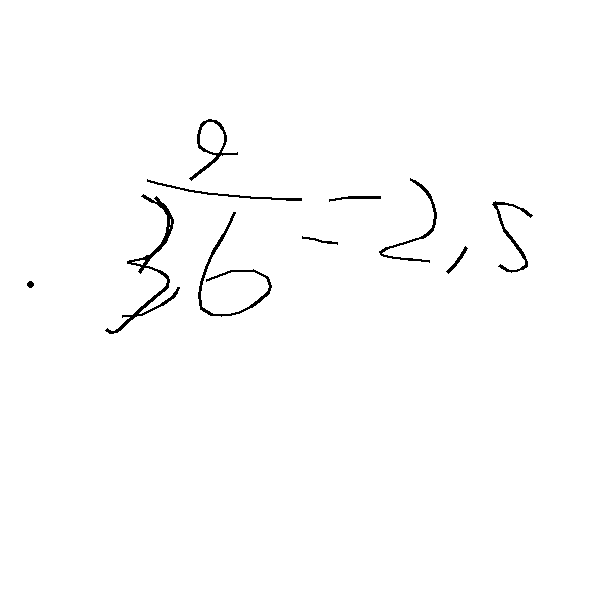 9
36 = 2,5